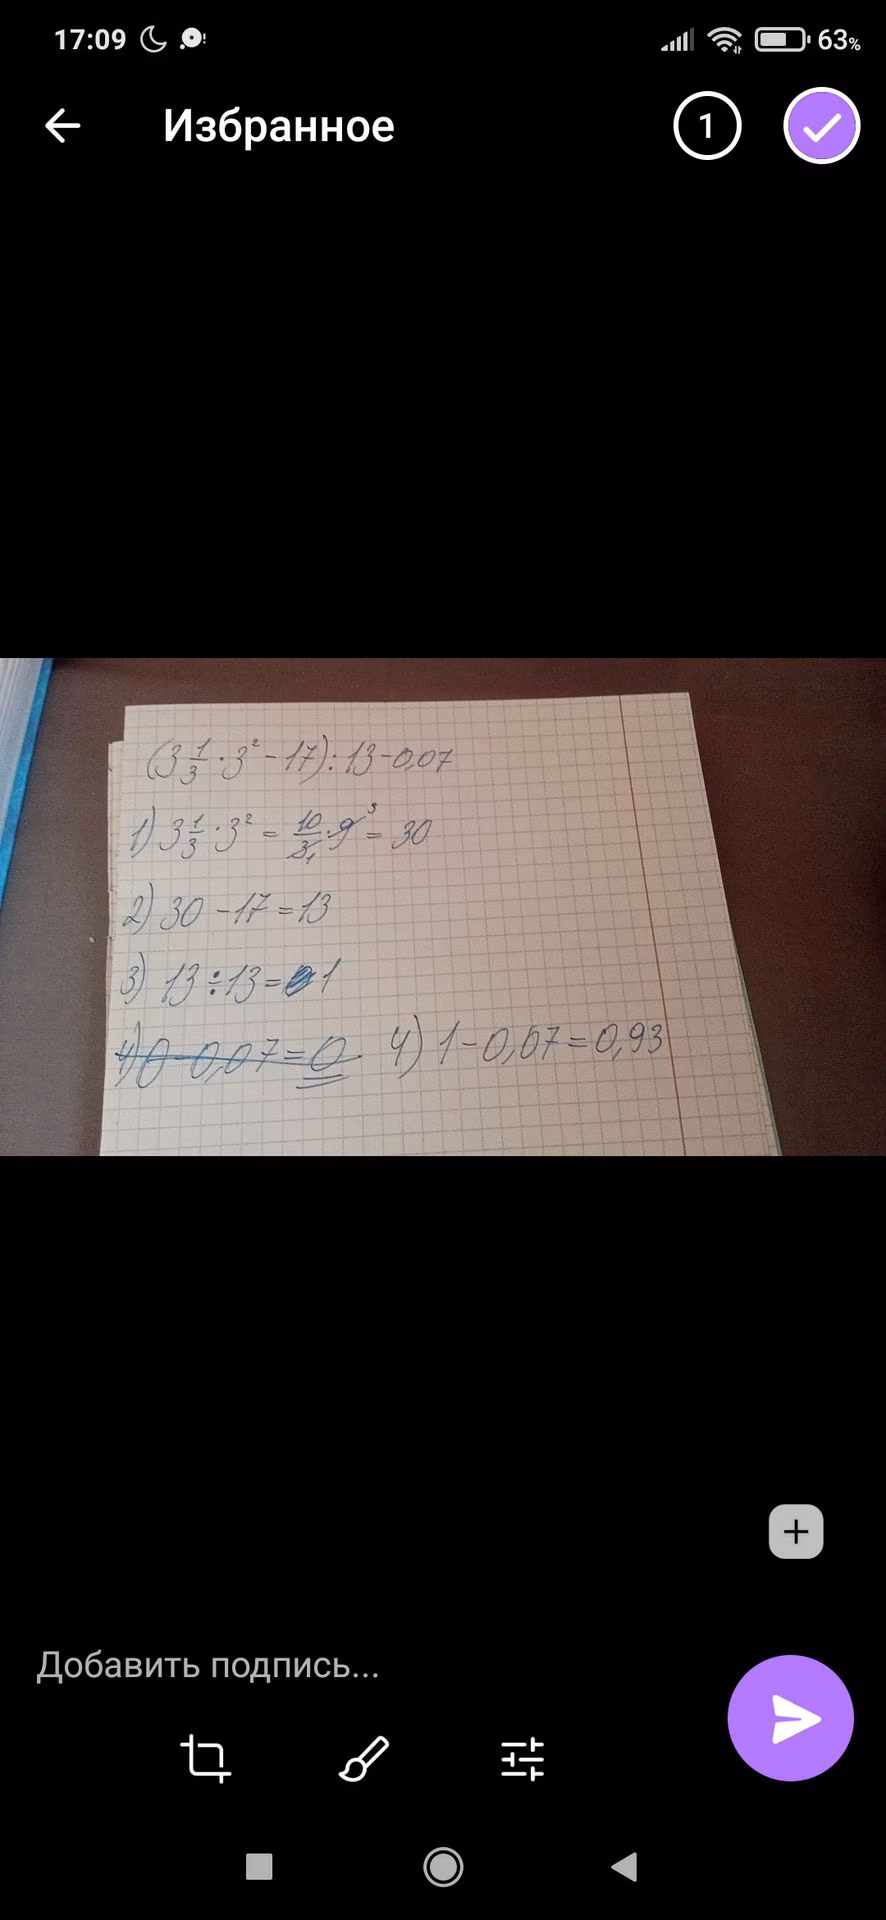 17:09 63%
Избранное 1
(3 1/3 · 3² - 17) : 13 - 0,07
1) 3 1/3 · 3² = 10/3₁ · 9³ = 30
2) 30 - 17 = 13
3) 13 ÷ 13 = 1
4) 0 - 0,07 = 0 4) 1 - 0,07 = 0,93
Добавить подпись...